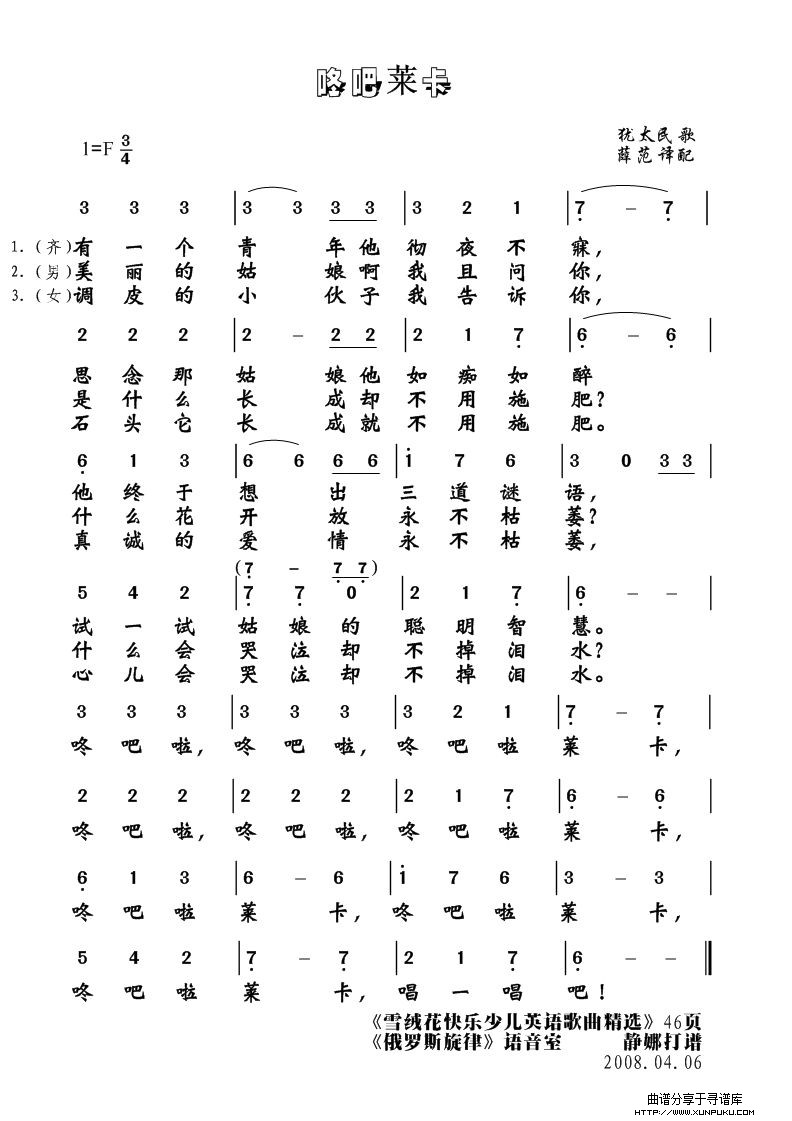 咚吧莱卡
1=F 3/4
犹太民歌
薛范译配
3 3 3 | 3 3 3 3 | 3 2 1 | 7 – 7 |
1.(齐)有一个青年他彻夜不寐,
2.(男)美丽的姑娘啊我且问你,
3.(女)调皮的小伙子我告诉你,
2 2 2 | 2 – 2 2 | 2 1 7 | 6 – 6 |
思念那姑娘他如痴如醉
是什么长成却不用施肥?
石头它长成就不用施肥。
6 1 3 | 6 6 6 6 | 1 7 6 | 3 0 3 3 |
他终于想出三道谜语,
什么花开放永不枯萎?
真诚的爱情永不枯萎,
(7 – 7 7)
5 4 2 | 7 7 0 | 2 1 7 | 6 – – |
试一试姑娘的聪明智慧。
什么会哭泣却不掉泪水?
心儿会哭泣却不掉泪水。
3 3 3 | 3 3 3 | 3 2 1 | 7 – 7 |
咚吧啦,咚吧啦,咚吧啦莱卡,
2 2 2 | 2 2 2 | 2 1 7 | 6 – 6 |
咚吧啦,咚吧啦,咚吧啦莱卡,
6 1 3 | 6 – 6 | 1 7 6 | 3 – 3 |
咚吧啦莱卡,咚吧啦莱卡,
5 4 2 | 7 – 7 | 2 1 7 | 6 – ‖
咚吧啦莱卡,唱一唱吧!
《雪绒花快乐少儿英语歌曲精选》46页
《俄罗斯旋律》语音室 静娜打谱
2008.04.06
曲谱分享于寻谱库
HTTP://WWW.XUNPUKU.COM